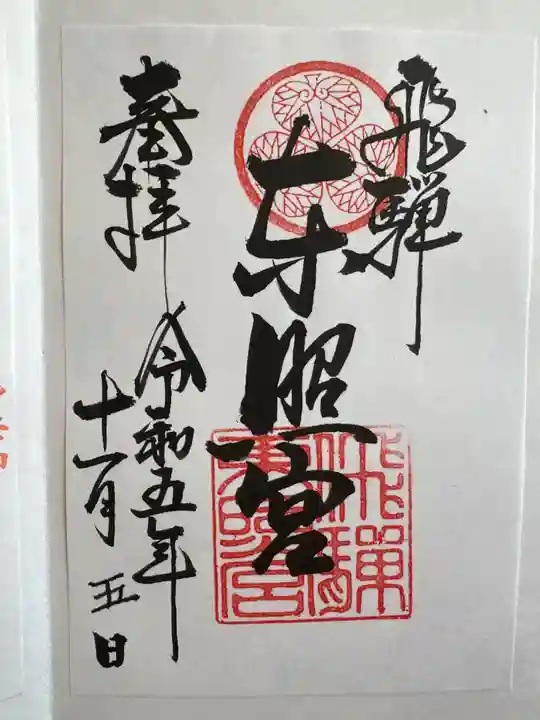 飛騨
東照宮
飛騨東照宮
奉拝
令和五年
十一月五日